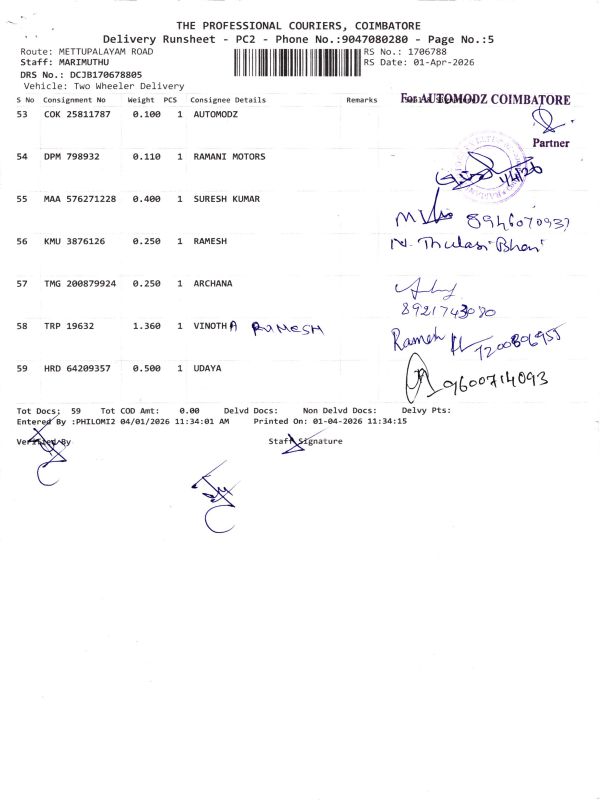 THE PROFESSIONAL COURIERS, COIMBATORE
Delivery Runsheet - PC2 - Phone No.:9047080280 - Page No.:5
Route: METTUPALAYAM ROAD RS No.: 1706788
Staff: MARIMUTHU RS Date: 01-Apr-2026
DRS No.: DCJB170678805
Vehicle: Two Wheeler Delivery
S No Consignment No Weight PCS Consignee Details Remarks
For AUTOMODZ COIMBATORE
53 COK 25811787 0.100 1 AUTOMODZ
Partner
54 DPM 798932 0.110 1 RAMANI MOTORS
1/4/26
55 MAA 576271228 0.400 1 SURESH KUMAR
56 KMU 3876126 0.250 1 RAMESH N. Thulasi Bhai
57 TMG 200879924 0.250 1 ARCHANA
58 TRP 19632 1.360 1 VINOTHA RAMESH
Ramesh
59 HRD 64209357 0.500 1 UDAYA
9600714093
Tot Docs: 59 Tot COD Amt: 0.00 Delvd Docs: Non Delvd Docs: Delvy Pts:
Entered By :PHILOMI2 04/01/2026 11:34:01 AM Printed On: 01-04-2026 11:34:15
Verified By Staff Signature